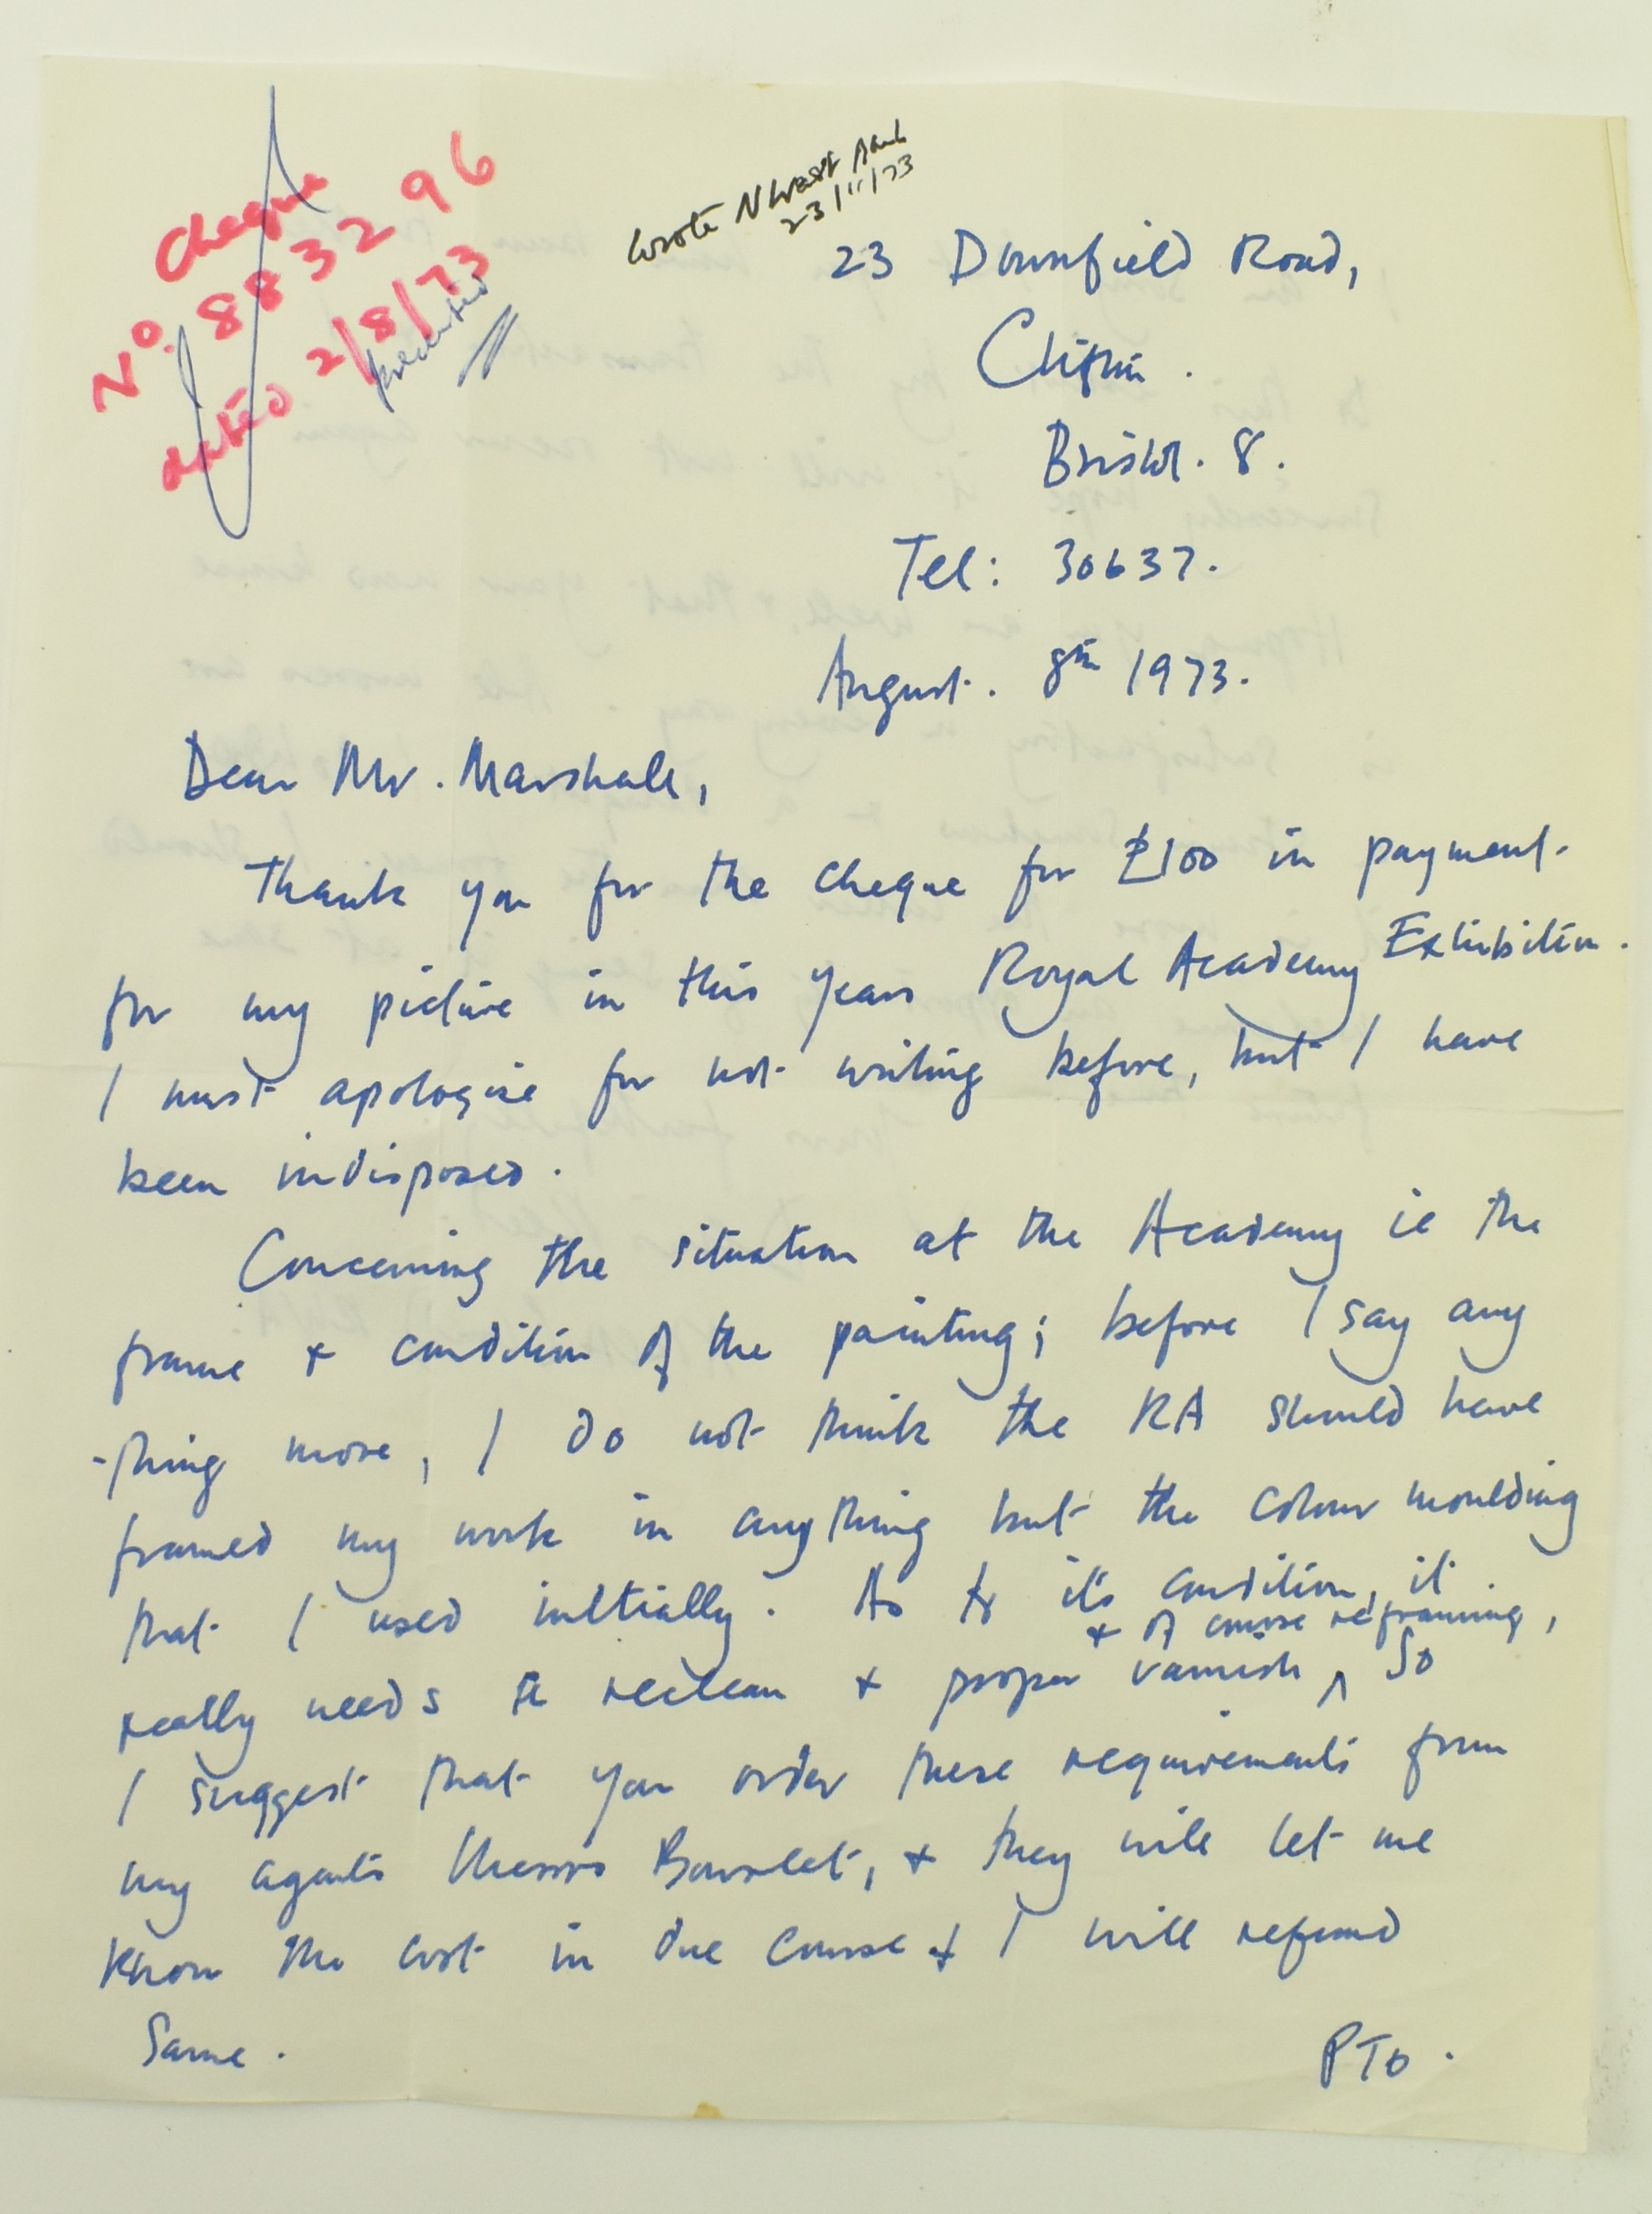 Cheque
No. 883296
dated 2/8/73
presented
Wrote N West Bank
23/11/73
23 Downfield Road,
Clifton.
Bristol. 8.
Tel: 30637.
August. 8th 1973.
Dear Mr. Marshall,
Thank you for the cheque for £100 in payment
for my picture in this years Royal Academy Exhibition.
I must apologise for not writing before, but I have
been indisposed.
Concerning the situation at the Academy ie the
frame + condition of the painting; before I say any
-thing more, I do not think the RA should have
framed my work in anything but the colour moulding
that I used initially. As to it's condition, it
+ of course reframing,
really needs a reclean + proper varnish ^ So
I suggest that you order these requirements from
my agents Messrs Bourlet, + they will let me
know the cost in due course + I will refund
Same.
PTO.